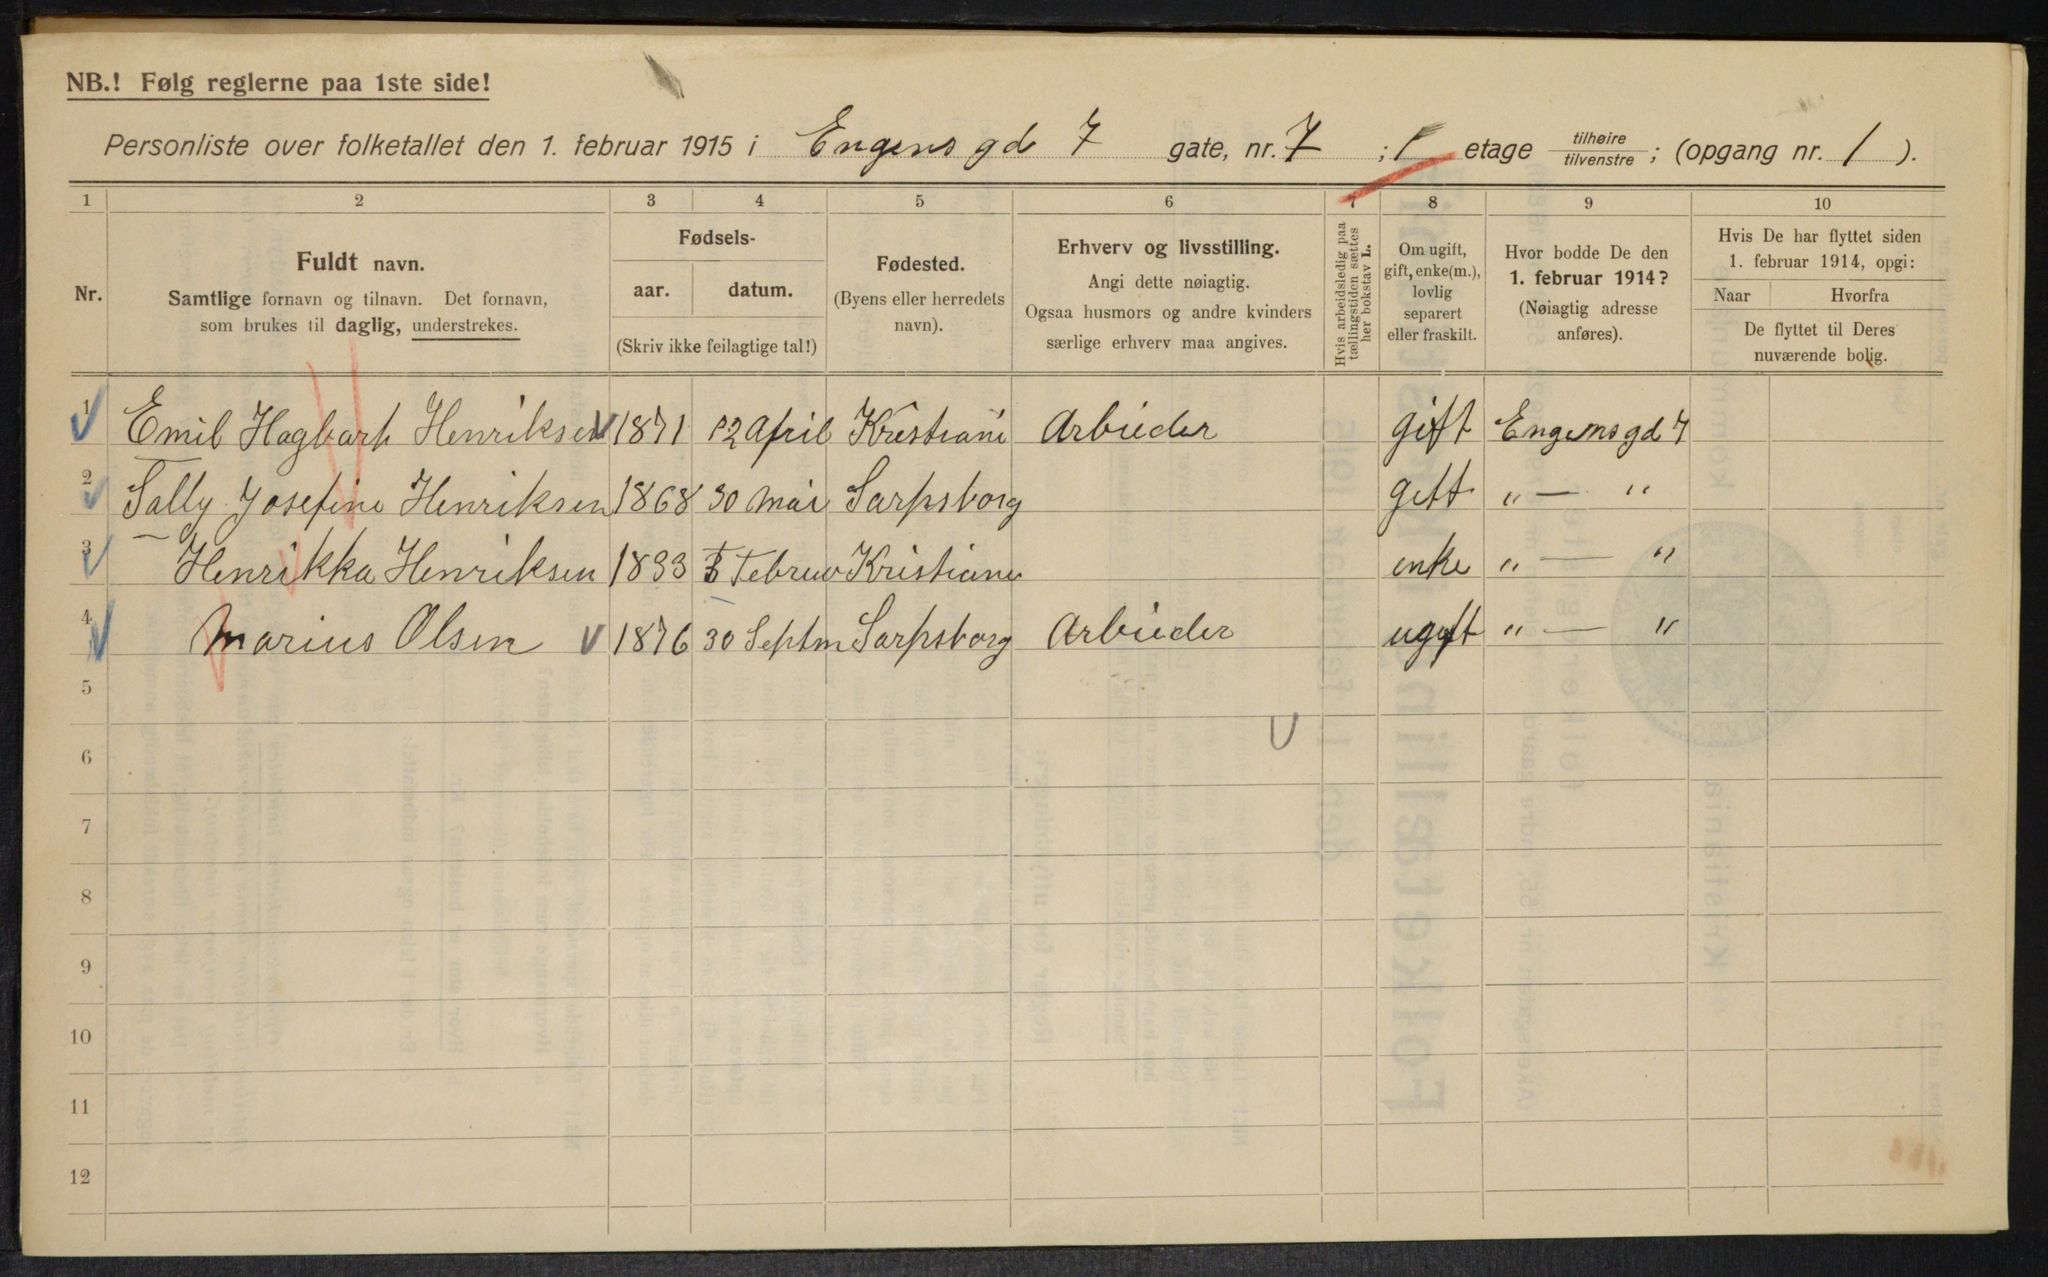 NB.! Følg reglerne paa 1ste side!
Personliste over folketallet den 1. februar 1915 i Engensgd 7 gate, nr. 7 ; 1 etage tilhøire tilvenstre ; (opgang nr. 1 ).
1 2 3 4 5 6 7 8 9 10
Nr.
Fuldt navn.
Samtlige fornavn og tilnavn. Det fornavn,
som brukes til daglig, understrekes.
Fødsels-
aar. datum.
(Skriv ikke feilagtige tal!)
Fødested.
(Byens eller herredets
navn).
Erhverv og livsstilling.
Angi dette nøiagtig.
Ogsaa husmors og andre kvinders
særlige erhverv maa angives.
Hvis arbeidsledig paa
tællingstiden sættes
her bokstav L.
Om ugift,
gift, enke(m.),
lovlig
separert
eller fraskilt.
Hvor bodde De den
1. februar 1914?
(Nøiagtig adresse
anføres).
Hvis De har flyttet siden
1. februar 1914, opgi:
Naar Hvorfra
De flyttet til Deres
nuværende bolig.
1 Emil Hagbart Henriksen 1871 12 April Kristiani Arbieder gift Engensgd 7
2 Sally Josefine Henriksen 1868 30 Mai Sarpsborg gift " — "
3 Henrikka Henriksen 1833 Februa Kristiani enke " — "
4 Marius Olsen 1876 30 Septm Sarpsborg Arbieder ugift " — "
5
6
7
8
9
10
11
12